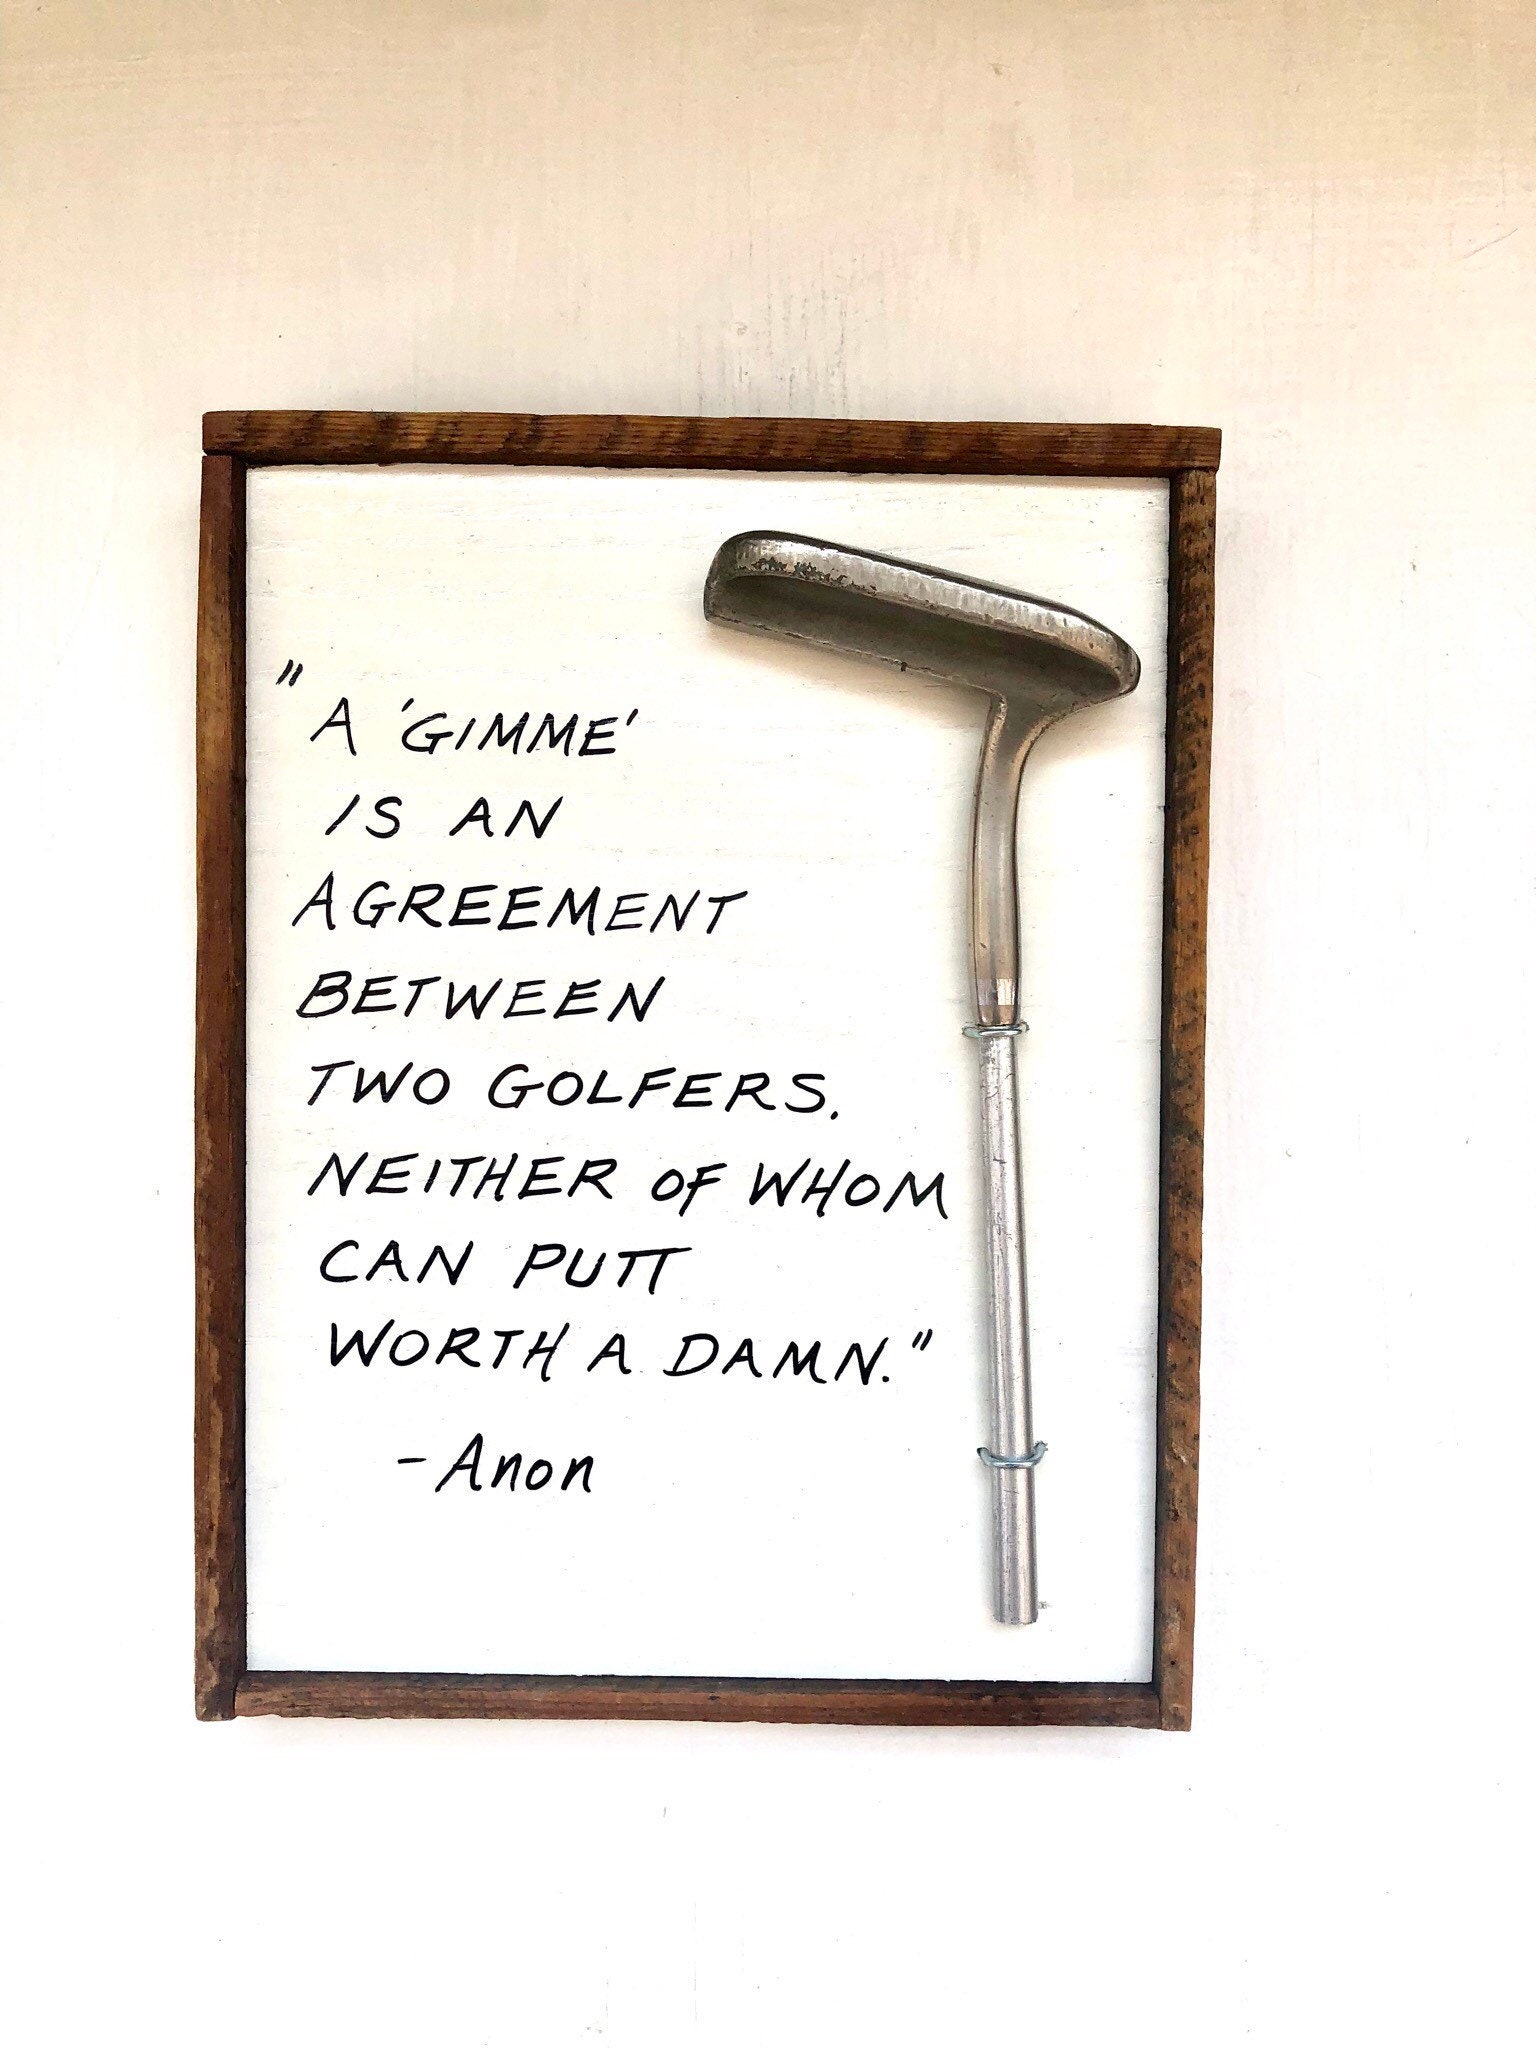 "A 'GIMME'
IS AN
AGREEMENT
BETWEEN
TWO GOLFERS.
NEITHER OF WHOM
CAN PUTT
WORTH A DAMN."
- Anon